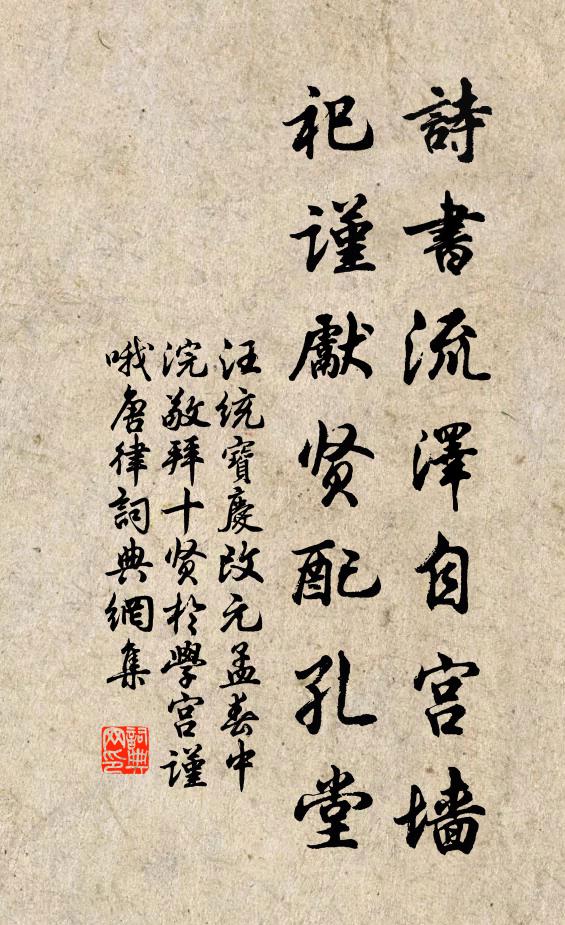 詩書流澤自宫墙
祀謹獻贤配孔堂
汪统寶慶改元孟春中
浣敬拜十贤於學宫谨
哦唐律詞典網集
詞典网印